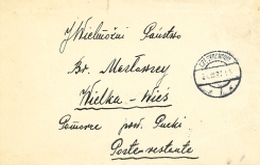 JWielmożni Państwo
Br. Masłowscy
Wielka-Wieś
Pomorze pow. Pucki
Poste-restante